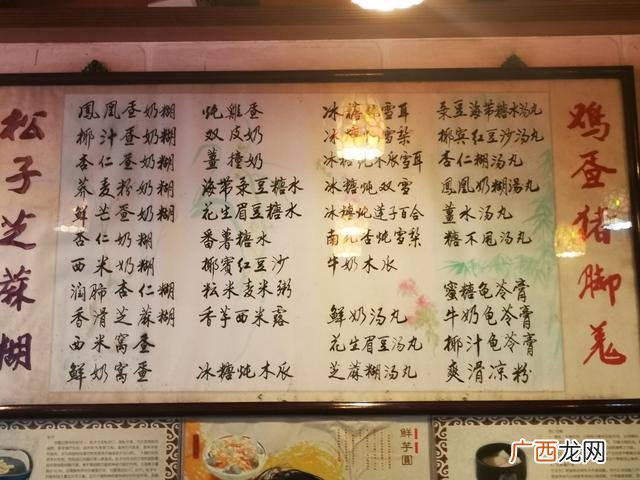 松子芝蔴糊
鳳凰蛋奶糊
椰汁蛋奶糊
杏仁蛋奶糊
荞麦粉奶糊
鲜芒蛋奶糊
杏仁奶糊
西米奶糊
润肺杏仁糊
香滑芝蔴糊
西米窩蛋
鲜奶窩蛋
炖雞蛋
双皮奶
薑撞奶
海带菉豆糖水
花生眉豆糖水
番薯糖水
椰賓红豆沙
粘米麦米粥
香芋西米露
冰糖炖木瓜
冰糖炖雪耳
冰糖炖雪梨
冰糖炖木瓜雪耳
冰糖炖双雪
冰糖炖莲子百合
南北杏炖雪梨
牛奶木瓜
鲜奶汤丸
花生眉豆汤丸
芝蔴糊汤丸
菉豆海带糖水汤丸
椰宾红豆沙汤丸
杏仁糊汤丸
鳳凰奶糊汤丸
薑水汤丸
糖不甩汤丸
蜜糖龟苓膏
牛奶龟苓膏
椰汁龟苓膏
爽滑凉粉
鸡蛋猪脚羌
鲜芋圆
广西龙网